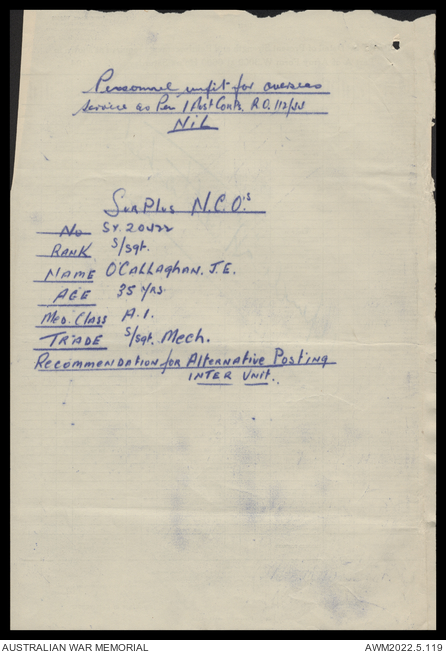 Personnel unfit for overseas
Service as Per 1 Aust Conts. R.O. 112/44
Nil
Surplus N.C.O's
No SX.20422
RANK S/Sgt.
NAME O'CALLAGHAN. J.E.
AGE 35 yrs.
Med. Class A.1.
TRADE S/Sgt. Mech.
Recommendation for Alternative Posting
INTER Unit.
AUSTRALIAN WAR MEMORIAL
AWM2022.5.119